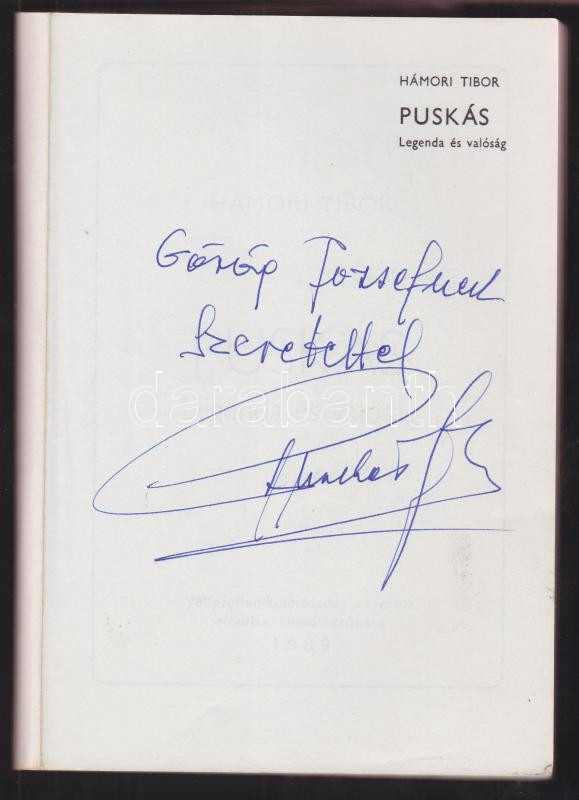 HÁMORI TIBOR
PUSKÁS
Legenda és valóság
HÁMORI TIBOR
Görög Jozsefnek
Szeretettel
darabanth
Puskás
1983